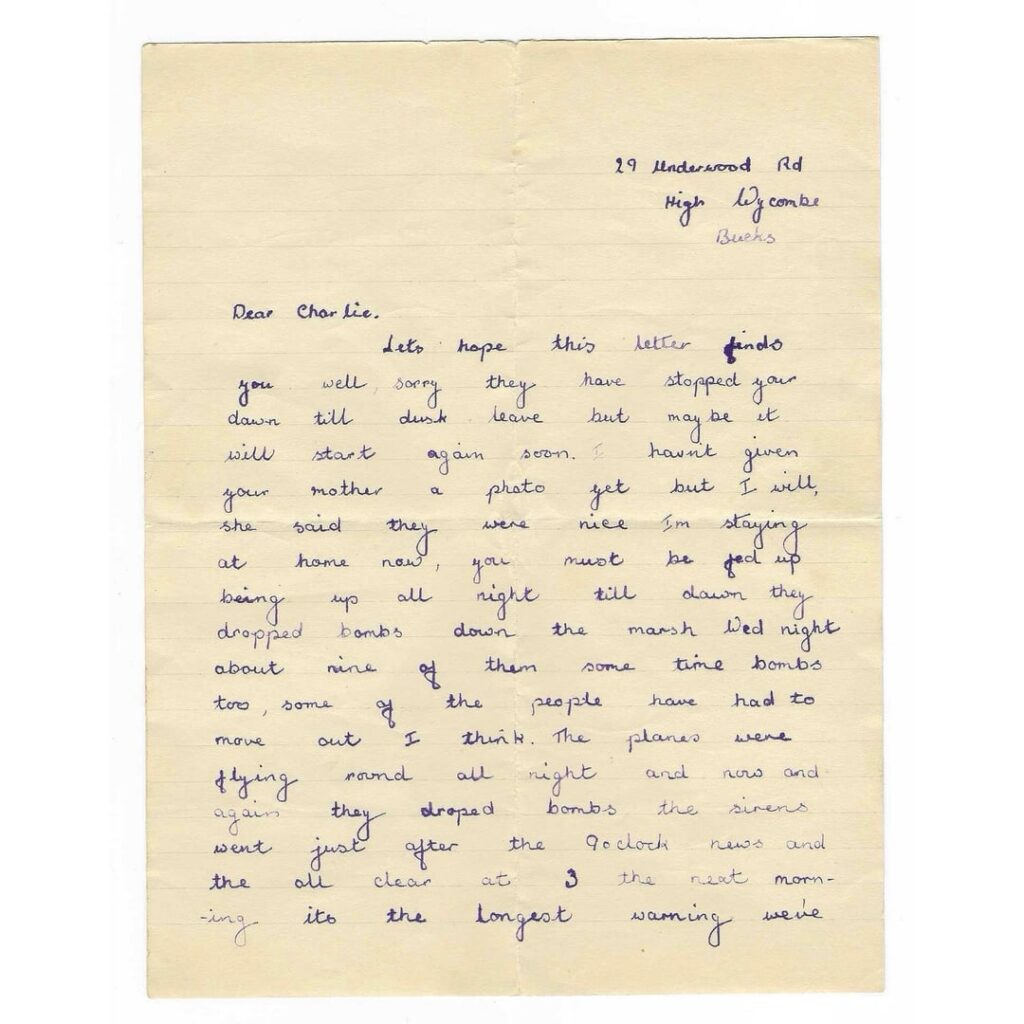 29 Underwood Rd
High Wycombe
Bucks
Dear Charlie.
Lets hope this letter finds
you well, sorry they have stopped your
dawn till dusk leave but maybe it
will start again soon. I havnt given
your mother a photo yet but I will,
she said they were nice Im staying
at home now, you must be fed up
being up all night till dawn they
dropped bombs down the marsh Wed night
about nine of them some time bombs
too, some of the people have had to
move out I think. The planes were
flying round all night and now and
again they droped bombs the sirens
went just after the 9oclock news and
the all clear at 3 the next morn-
-ing its the longest warning we've